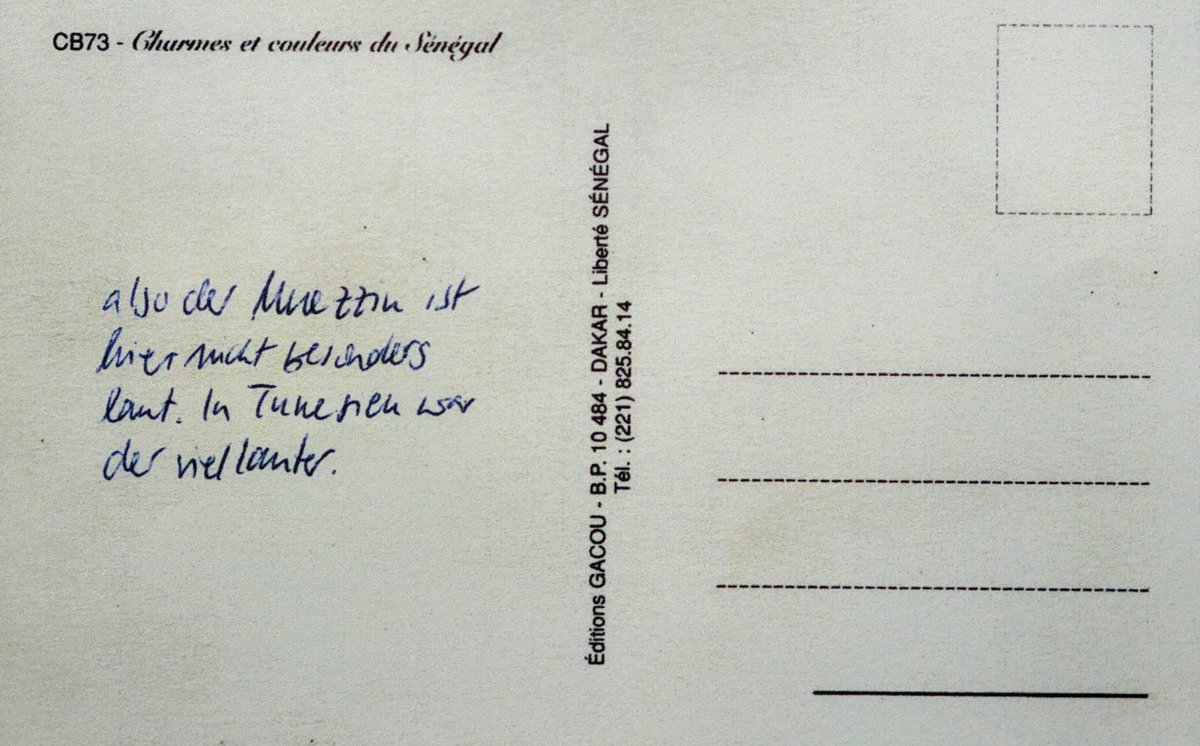 CB73 - Charmes et couleurs du Sénégal
also der Muezzin ist
hier nicht besonders
laut. In Tunesien war
der viel lauter.
Éditions GACOU - B.P. 10 484 - DAKAR - Liberté SÉNÉGAL
Tél. : (221) 825.84.14